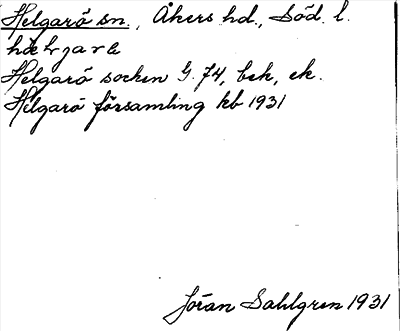 Helgarö sn., Åkers hd., Söd. l.
Helgarö socken G. 74, bek, ek.
Helgarö församling kb 1931
Jöran Sahlgren 1931